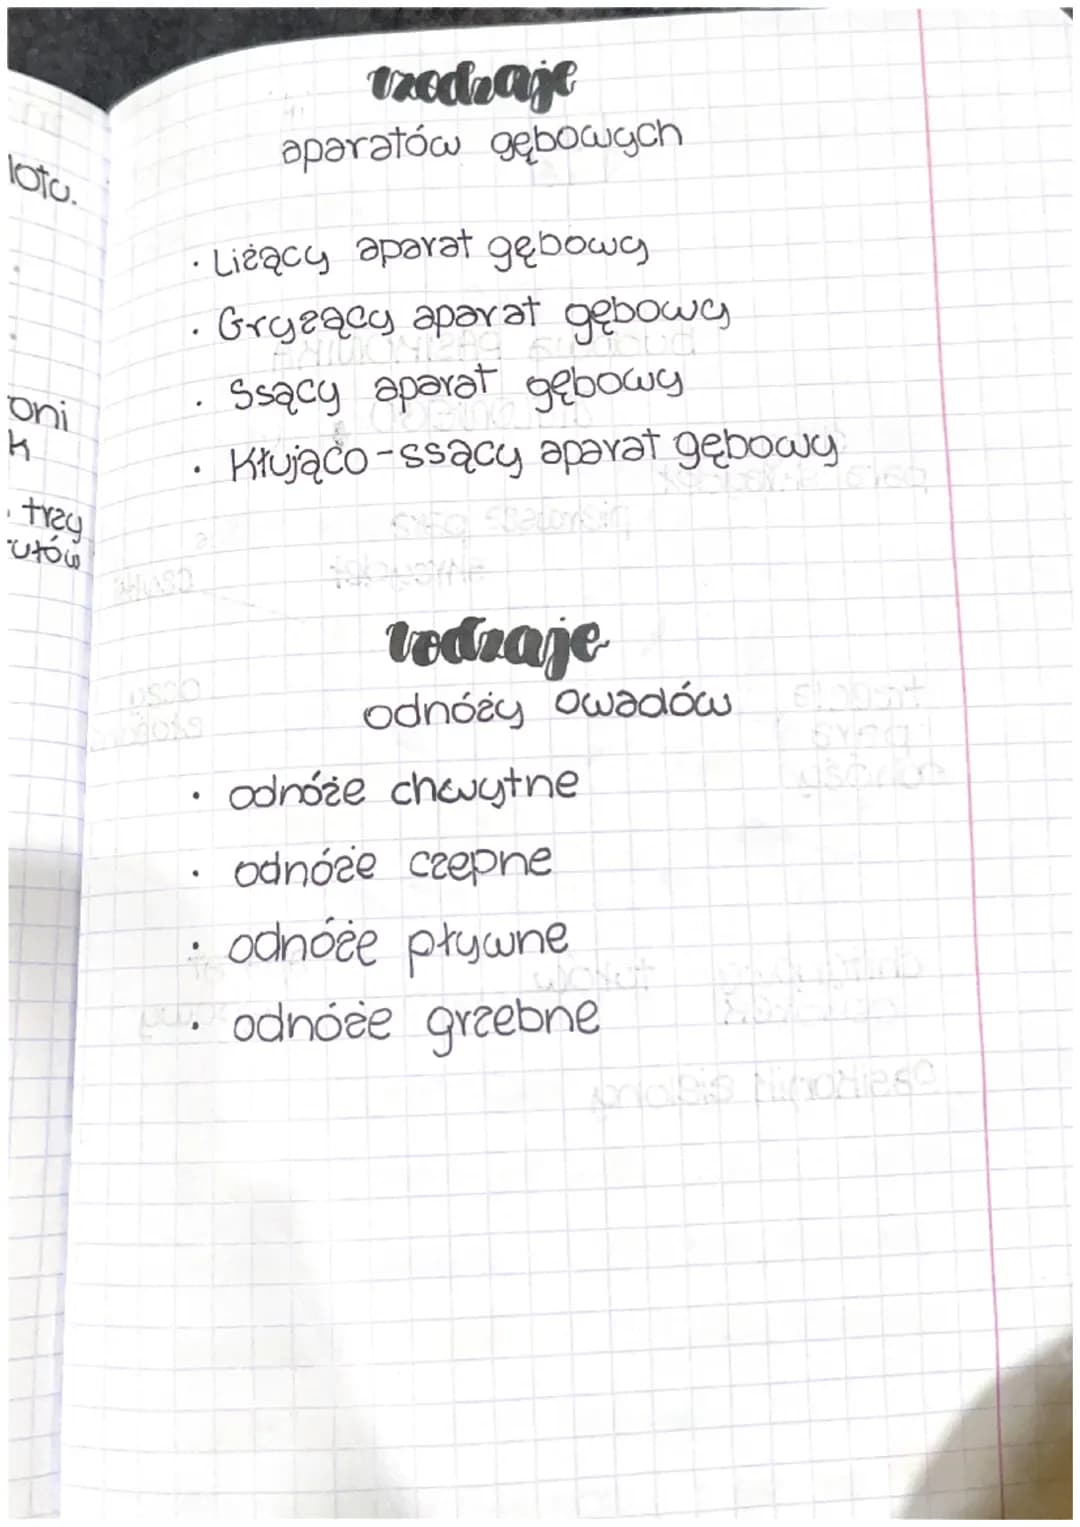 rodzaje
aparatów gębowych
· Liżący aparat gębowy
· Gryzący aparat gębowy
· Ssący aparat gębowy
· Kłująco-ssący aparat gębowy
rodzaje
odnóży owadów
· odnóże chwytne
· odnóże czepne
· odnóże pływne
· odnóże grzebne
lotu.
oni
k
trzy